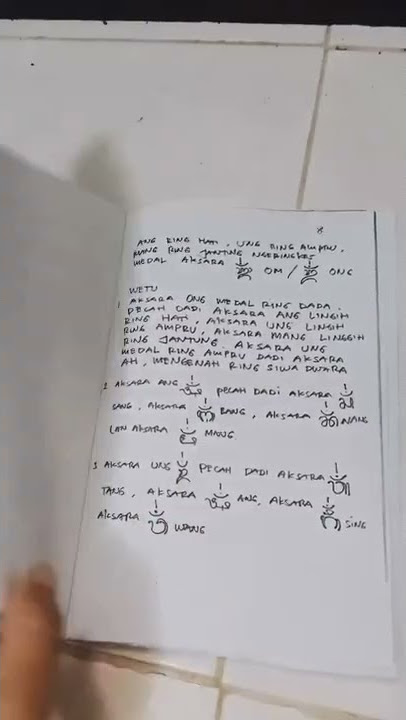 ANG RING HATI, UNG RING AMPRU,
MANG RING JANTUNG NGERINGKES
MEDAL AKSARA OM / ONG
WETU
1 AKSARA ONG MEDAL RING DADA.
PECAH DADI AKSARA ANG LINGIH
RING HATI, AKSARA UNG LINGIH
RING AMPRU, AKSARA MANG LINGGIH
RING JANTUNG. AKSARA UNG
MEDAL RING AMPRU DADI AKSARA
AH, MENGENAH RING SIWA DWARA
2 AKSARA ANG PECAH DADI AKSARA
SANG, AKSARA BANG, AKSARA NANG
LAN AKSARA MANG
3 AKSARA UNG PECAH DADI AKSARA
TANG, AKSARA ANG, AKSARA SING
AKSARA WANG